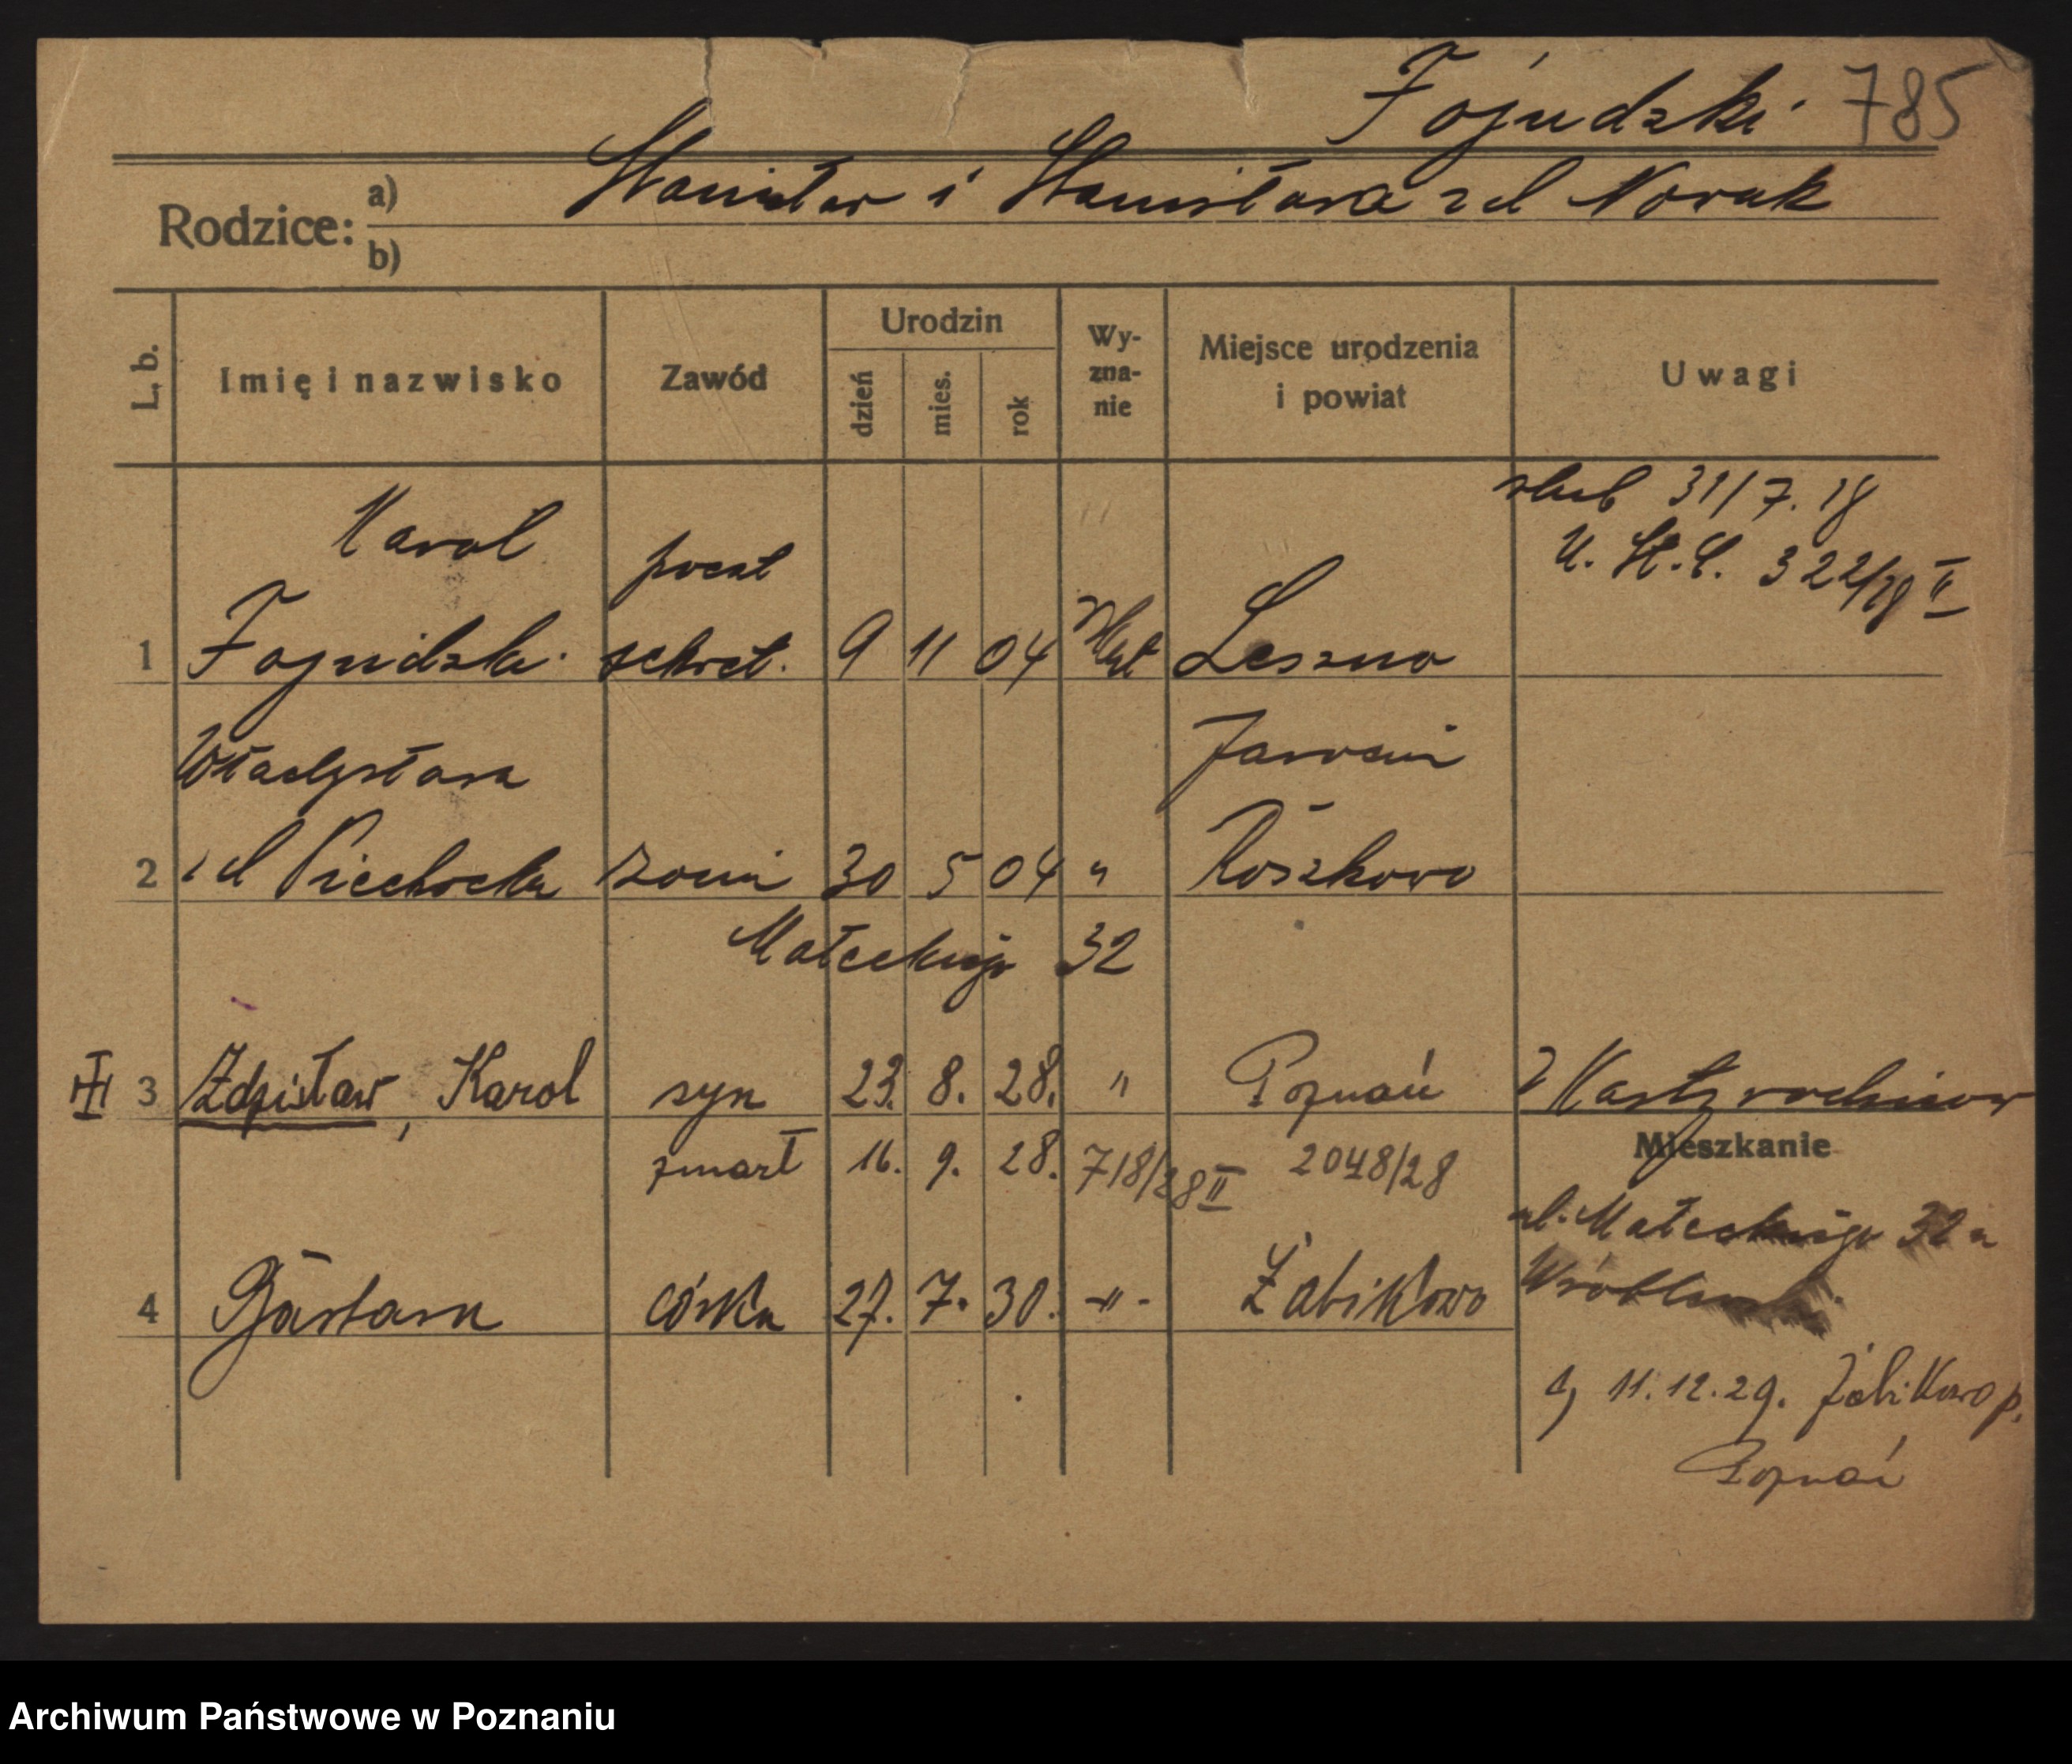 Fojudzki 785
Rodzice:
a) Stanisław i Stanisława z d Nowak
b)
L. b. Imię i nazwisko Zawód Urodzin dzień mies. rok Wy-zna-nie Miejsce urodzenia i powiat Uwagi
ślub 31/7. 28
U. St. C. 322/28 II
Karol
poczt
1 Fojudzki sekret. 9 11 04 Leszno
Władysława Jarocin
2 z d Piechocka żona 30 5 04 " Roszkowo
Małeckiego 32
III 3 Zdzisław, Karol syn 23. 8. 28. " Poznań z Karty rodzinow
zmarł 16. 9. 28. 718/28 II 2048/28
Mieszkanie
ul. Małeckiego 32
4 Barbara córka 27. 7. 30. -"- Żabikowo
11.12.29. Żabikowo p.
Poznań
Archiwum Państwowe w Poznaniu